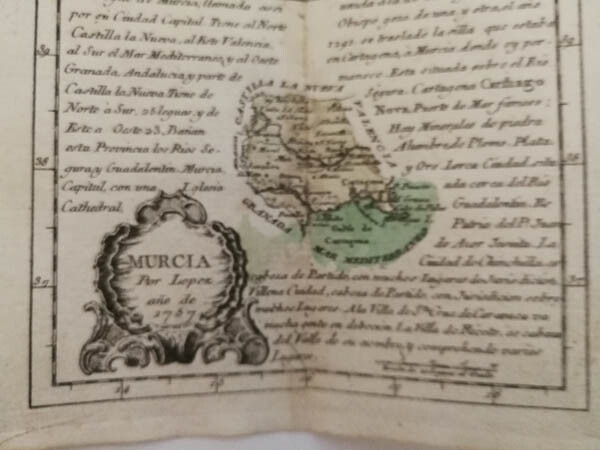 de Murcia, llamada así
por su Ciudad Capital. Tiene al Norte
Castilla la Nueva, al Este Valencia,
al Sur el Mar Mediterraneo, y al Oeste
Granada, Andalucia y parte de
Castilla la Nueva. Tiene de
Norte à Sur, 26 leguas, y de
Este a Oeste 23. Bañan
esta Provincia los Rios Se-
gura, y Guadalentin. Murcia
Capital, con una Iglesia
Cathedral.
Obispo, goza de una, y otra, el año
1291. se traslado la silla que estaba
en Cartagena, à Murcia donde oy per-
manece. Esta situada sobre el Rio
Segura. Cartagena Carthago
Nova, Puerto de Mar famoso:
Hay Minerales de piedra
Alumbre, de Plomo, Plata,
y Oro. Lorca Ciudad, situ
ada cerca del Rio
Guadalentin. Es
Patria del P. Juan
de Acor Jesuita. La
Ciudad de Chinchilla, es
cabeza de Partido, con muchos Lugares de Jurisdiccion.
Villena Ciudad, cabeza de Partido, con Jurisdicion sobre
muchos Lugares. A la Villa de Sta. Cruz de Caravaca va
mucha gente en debocion. La Villa de Ricote, es cabeza
del Valle de su nombre, y comprehende varios
Lugares.
CASTILLA LA NUEVA
VALENCIA
GRANADA
MAR MEDITERRANEO
Golfo de
Cartagena
MURCIA
Por Lopez
año de
1757
39
38
37
39
38
37
14
15
16